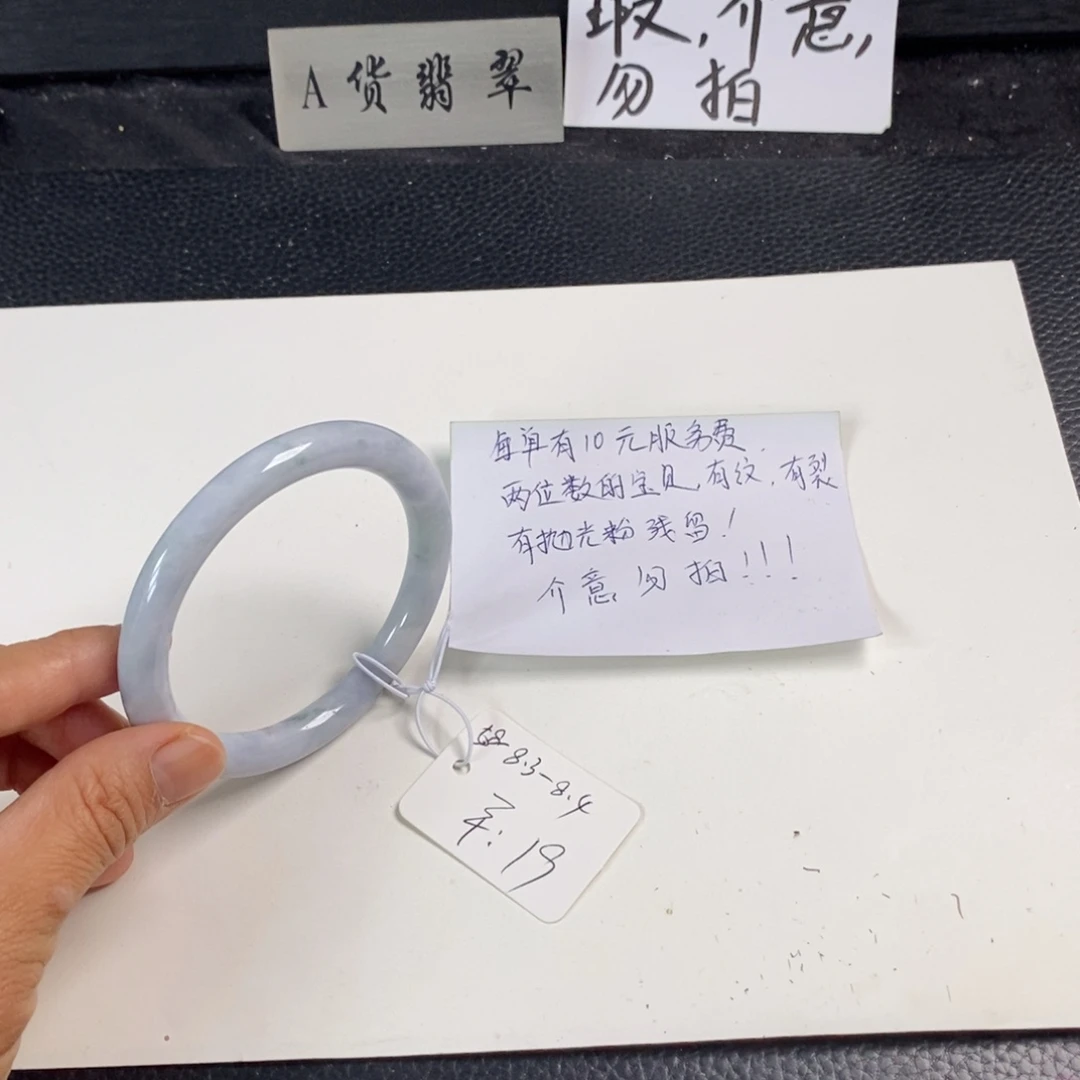 A 货 翡 翠
瑕,介意,
勿 拍
每单有10元服务费.
两位数的宝贝,有纹,有裂
有抛光粉残岛!
介意勿拍!!!
8.3-8.4
¥:19